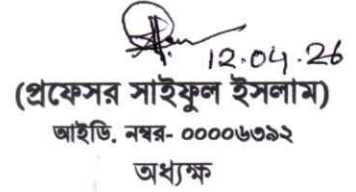 12.04.26
(প্রফেসর সাইফুল ইসলাম)
আইডি. নম্বর- ০০০০৬৩৯২
অধ্যক্ষ